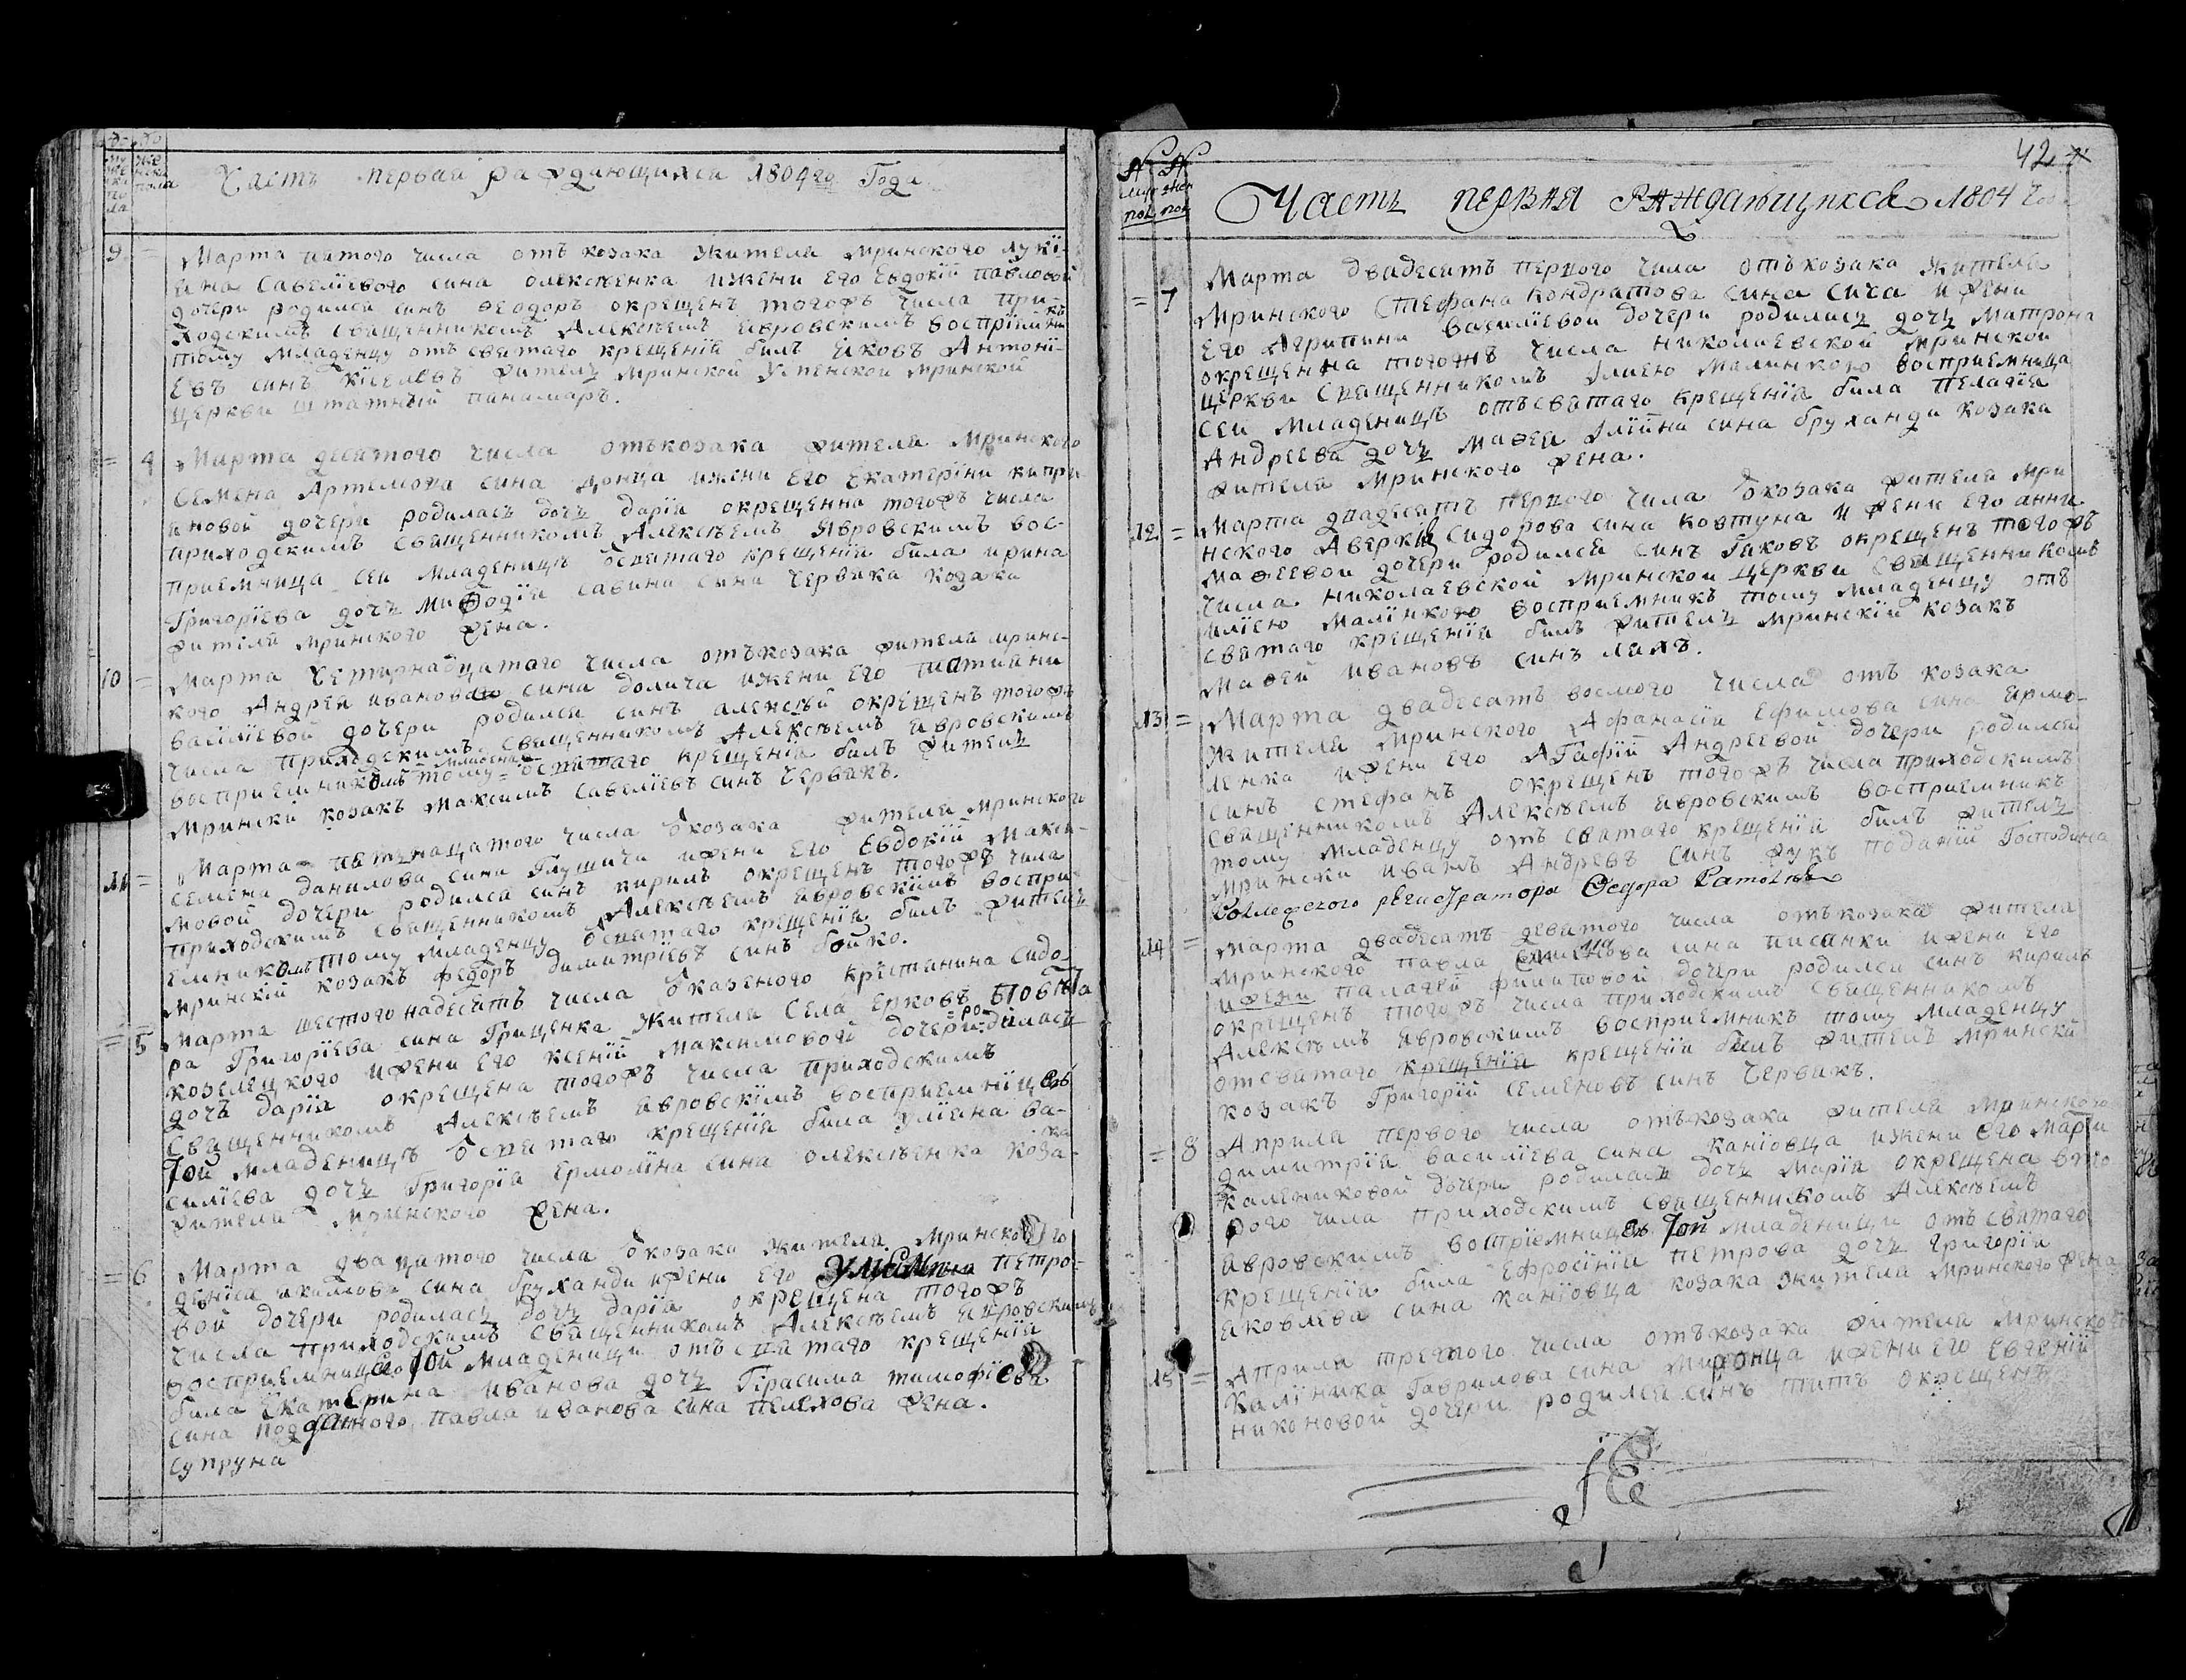 Часть первая раждающихся 1804го Года
9 = Марта пятого числа отъ козака жителя мринского луки-
яна Савелїевого сина олексѣенка ижени его Евдокїи павловой
дочери родился синъ Ѳеодоръ окрещенъ тогожъ числа при-
ходскимъ священникомъ Алексѣемъ Явровскимъ
тому младенцу отъ святаго крещенїя билъ Яковъ Антонї-
евъ синъ жителъ Мринской Успенской мринской
церкви штатный панимаръ.
= 4 Марта десятого числа отъкозака жителя Мринского
Семена Артемова сина донца ижени его Екатерїни кипри
яновой дочери родиласъ дочъ дарїя окрещенна тогожъ числа
приходскимъ священникомъ Алексѣемъ Явровскимъ вос-
приемница сеи младеницѣ ѿсвятаго крещенїя била ирина
Григорїева дочъ Мифодїя савина сина Червяка козака
жителя мринского жена.
10 = Марта Четирнадцятаго числа отъкозака жителя мринс-
кого Андрея иванового сина долича ижени его татияни
василїевой дочери родился синъ алексѣй окрещенъ тогожъ
числа приходскимъ священникомъ Алексѣемъ Явровскимъ
восприемникомъ тому младенцу ѿсвятаго крещенїя билъ жителъ
Мрински козакъ Максимъ Савелїевъ синъ Червякъ.
11 = Марта пятънацатого числа ѿкозака жителя Мринского
Семена данилова сина Глушича ижени его Евдокїи Макси-
мовой дочери родился синъ кирилъ окрещенъ тогожъ числа
приходскимъ священникомъ Алексѣемъ Явровскимъ воспри-
емникомъ тому младенцу ѿсвятаго крещенїя билъ жителъ
мринскїй козакъ федоръ димитрїевъ синъ бойко.
= 5 Марта шестого надесять числа ѿказеного крестянина Сидо-
ра Григорїева сина Гриценка жителя Села Ерковъ повѣта
козелецкого ижени его ксенїи Максимовой дочери родиласъ
дочъ дарїя окрещена тогожъ числа приходскимъ
Священникомъ Алексѣемъ Явровскїмъ восприемницею
Той младеницѣ ѿсвятаго крещенїя била улїяна ва-
силїева дочъ Григорїя Ермолїна сина олексѣенка козака
жителя Мринского жена.
= 6 Марта двацатого числа ѿкозака жителя Мринского
дениса якимова сина бруханди ижени его Улиянни петро-
вой дочери родиласъ дочъ дарїя окрещена тогожъ
числа приходскимъ священникомъ Алексѣемъ Явровскимъ
восприемницею Той младеници отъ святаго крещенїя
била Екатерина иванова дочъ Гїрасима тимофїева
сина подданного павла иванова сина пелехова жена.
супруна
42
№ № муж пол жен пол
Часть первая Раждающихся 1804 Года
= 7 Марта двадесятъ первого числа отъкозака жителя
Мринского Стефана кондратова сина сича ижени
его Агрипини василїевой дочери родиласъ дочъ Матрона
окрещенна тогожъ числа николаевской мринской
церкви Священникомъ Илиею Малинкого восприемница
сеи младеницѣ отъсвятаго крещенїя била пелагїя
Андреева дочъ Маѳея Илїина сина бруханди козака
жителя мринского жена.
12 = Марта двадесятъ первого числа ѿкозака жителя мри
нского Аверкїя сидорова сина ковтуна ижени его анни
маѳеевой дочери родился синъ Їаковъ окрещенъ тогожъ
числа николаевской мринской церкви священникомъ
илїею малїнкого восприемникъ тому младенцу отъ
святаго крещенїя билъ жителъ мринскїй козакъ
маѳей ивановъ синъ ляхъ.
13 = Марта двадесятъ восмого числа отъ козака
Жителя Мринского Афанасїя Ефимова сина ярмо-
ленка ижени его Агафїи Андреевой дочери родился
синъ стефанъ окрещенъ тогожъ числа приходскимъ
священникомъ Алексѣемъ Явровскимъ восприемникъ
тому младенцу отъ святаго крещенїя билъ жителъ
мрински иванъ Андреевъ синъ жукъ поданїй Господина
регистратора Федора
14 = Марта двадесятъ девятого числа отъкозака жителя
Мринского павла сина писанки ижени его
ижени палагеи филиповой дочери родился синъ кирилъ
окрещенъ тогожъ числа приходскимъ священникомъ
Алексѣемъ Явровскимъ восприемникъ тому младенцу
отсвятаго крещенїя крещенїя билъ жителъ мринскй
козакъ Григорїй Семеновъ синъ Червякъ.
= 8 Априля первого числа отъкозака жителя Мринского
димитрїя василїева сина канїовца ижени его Марїи
калениковой дочери родиласъ дочъ Марїя окрещена вто
рого числа приходскимъ священникомъ Алексѣемъ
Явровскимъ вострїемницею Той младеници отъ святаго
крещенїя била Ефросїнїя петрова дочъ григорїя
яковлева сина канїовца козака жителя мринского жена
15 = Априля третого числа отъкозака жителя мринского
калїника Гаврилова сина миронца ижени его Евгенїи
никоновой дочери родился синъ титъ окрещенъ